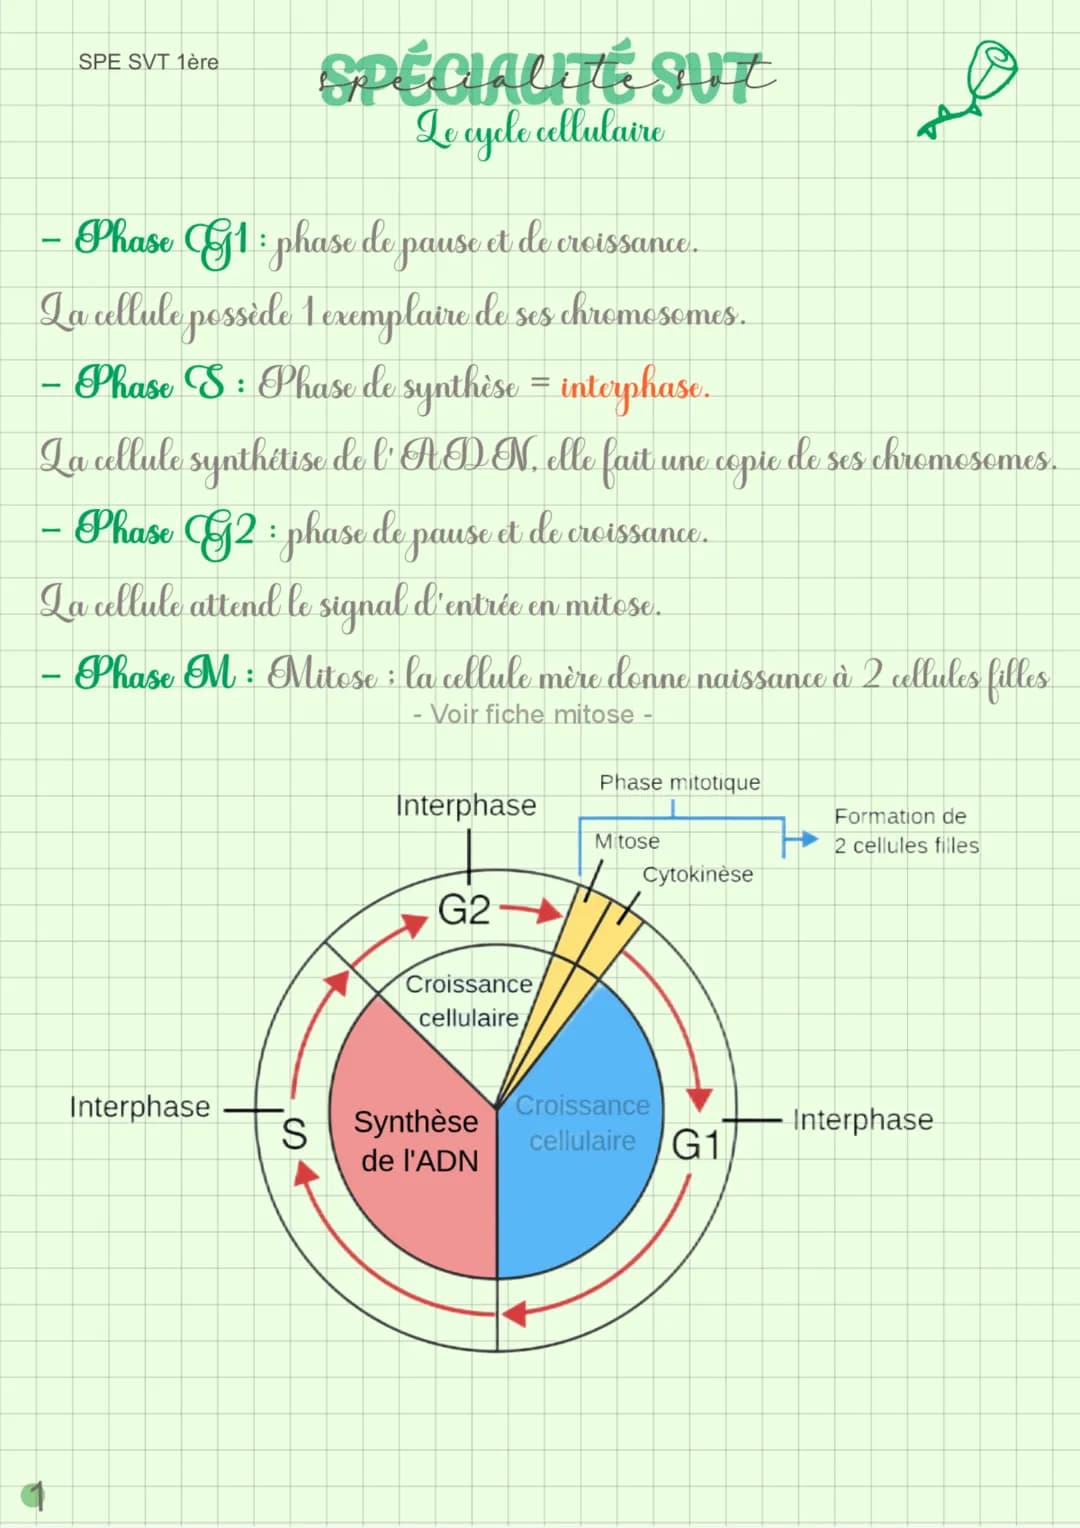 SPE SVT 1ère
SPÉCIALITÉ SVT
specialite svt
Le cycle cellulaire
- Phase G1 : phase de pause et de croissance.
La cellule possède 1 exemplaire de ses chromosomes.
- Phase S : Phase de synthèse = interphase.
La cellule synthétise de l'ADN, elle fait une copie de ses chromosomes.
- Phase G2 : phase de pause et de croissance.
La cellule attend le signal d'entrée en mitose.
- Phase M : Mitose ; la cellule mère donne naissance à 2 cellules filles
- Voir fiche mitose -
Phase mitotique
Interphase
Formation de
2 cellules filles
Mitose
Cytokinèse
G2
Croissance
cellulaire
Interphase
S
Synthèse
de l'ADN
Croissance
cellulaire
G1
Interphase
1